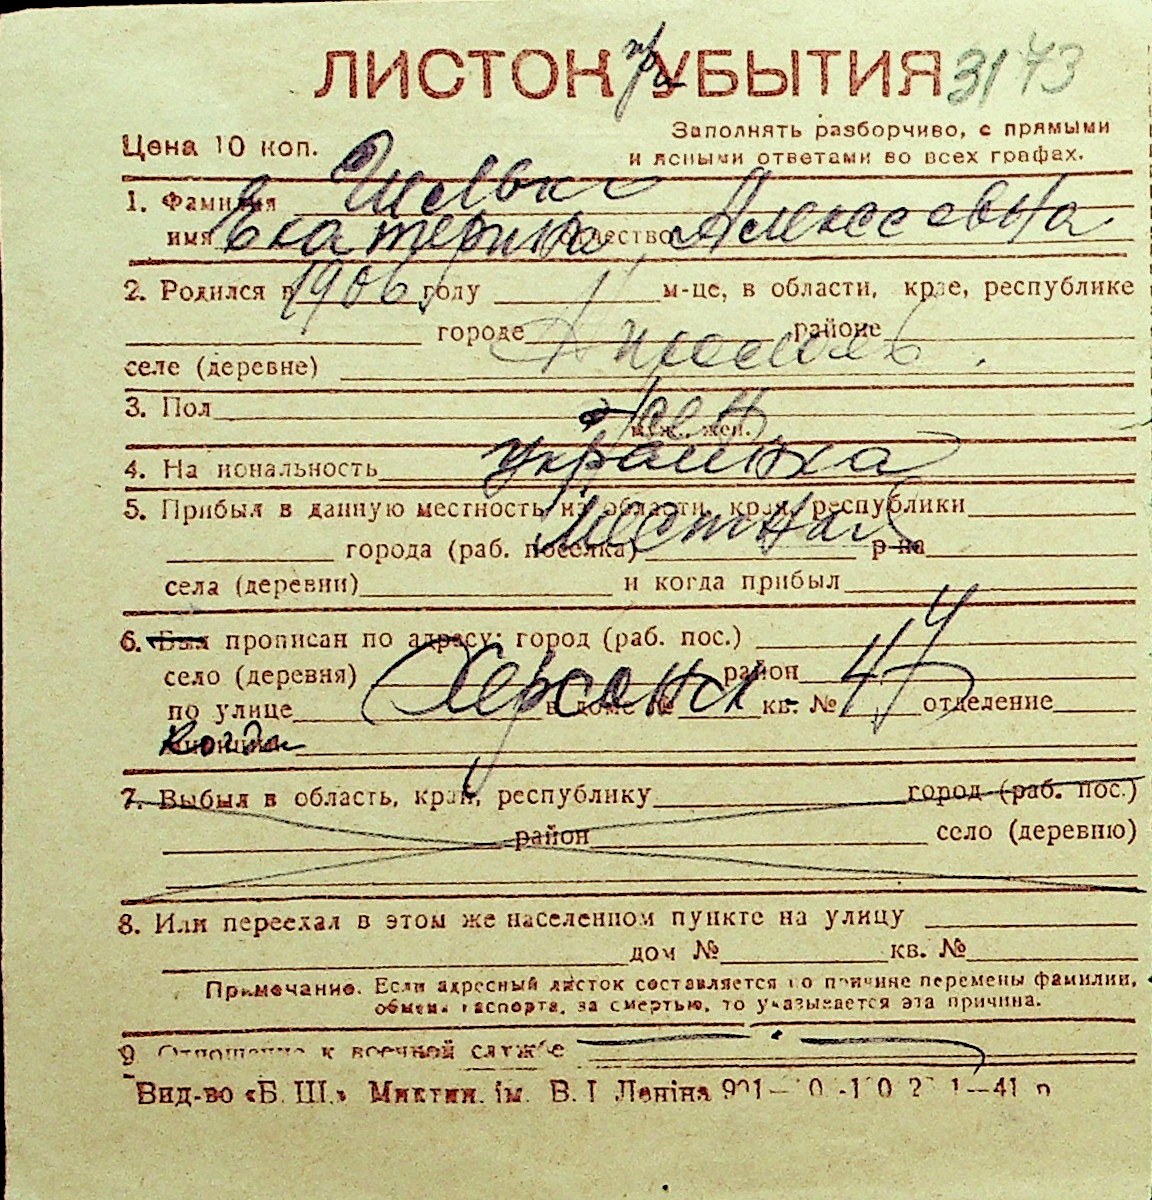 ЛИСТОК при УБЫТИЯ 3173
Цена 10 коп.
Заполнять разборчиво, с прямыми
и ясными ответами во всех графах.
1. Фамилия
имя Екатерина отчество Алексеевна
2. Родился в 1906 году м-це, в области, крае, республике
городе районе
селе (деревне)
3. Пол жен
муж., жен.
4. Национальность украинка
5. Прибыл в данную местность из области, края, республики
местная
города (раб. поселка) р-на
села (деревни) и когда прибыл
6. Был прописан по адресу: город (раб. пос.)
село (деревня) Херсонск район 44
по улице в доме № кв. № отделение
милиции когда
7. Выбыл в область, край, республику город (раб. пос.)
район село (деревню)
8. Или переехал в этом же населенном пункте на улицу
дом № кв. №
Примечание. Если адресный листок составляется по причине перемены фамилии,
обмена паспорта, за смертью, то указывается эта причина.
9 Отношение к военной службе
Вид-во «Б. Ш.» Миктип. ім. В. І Леніна